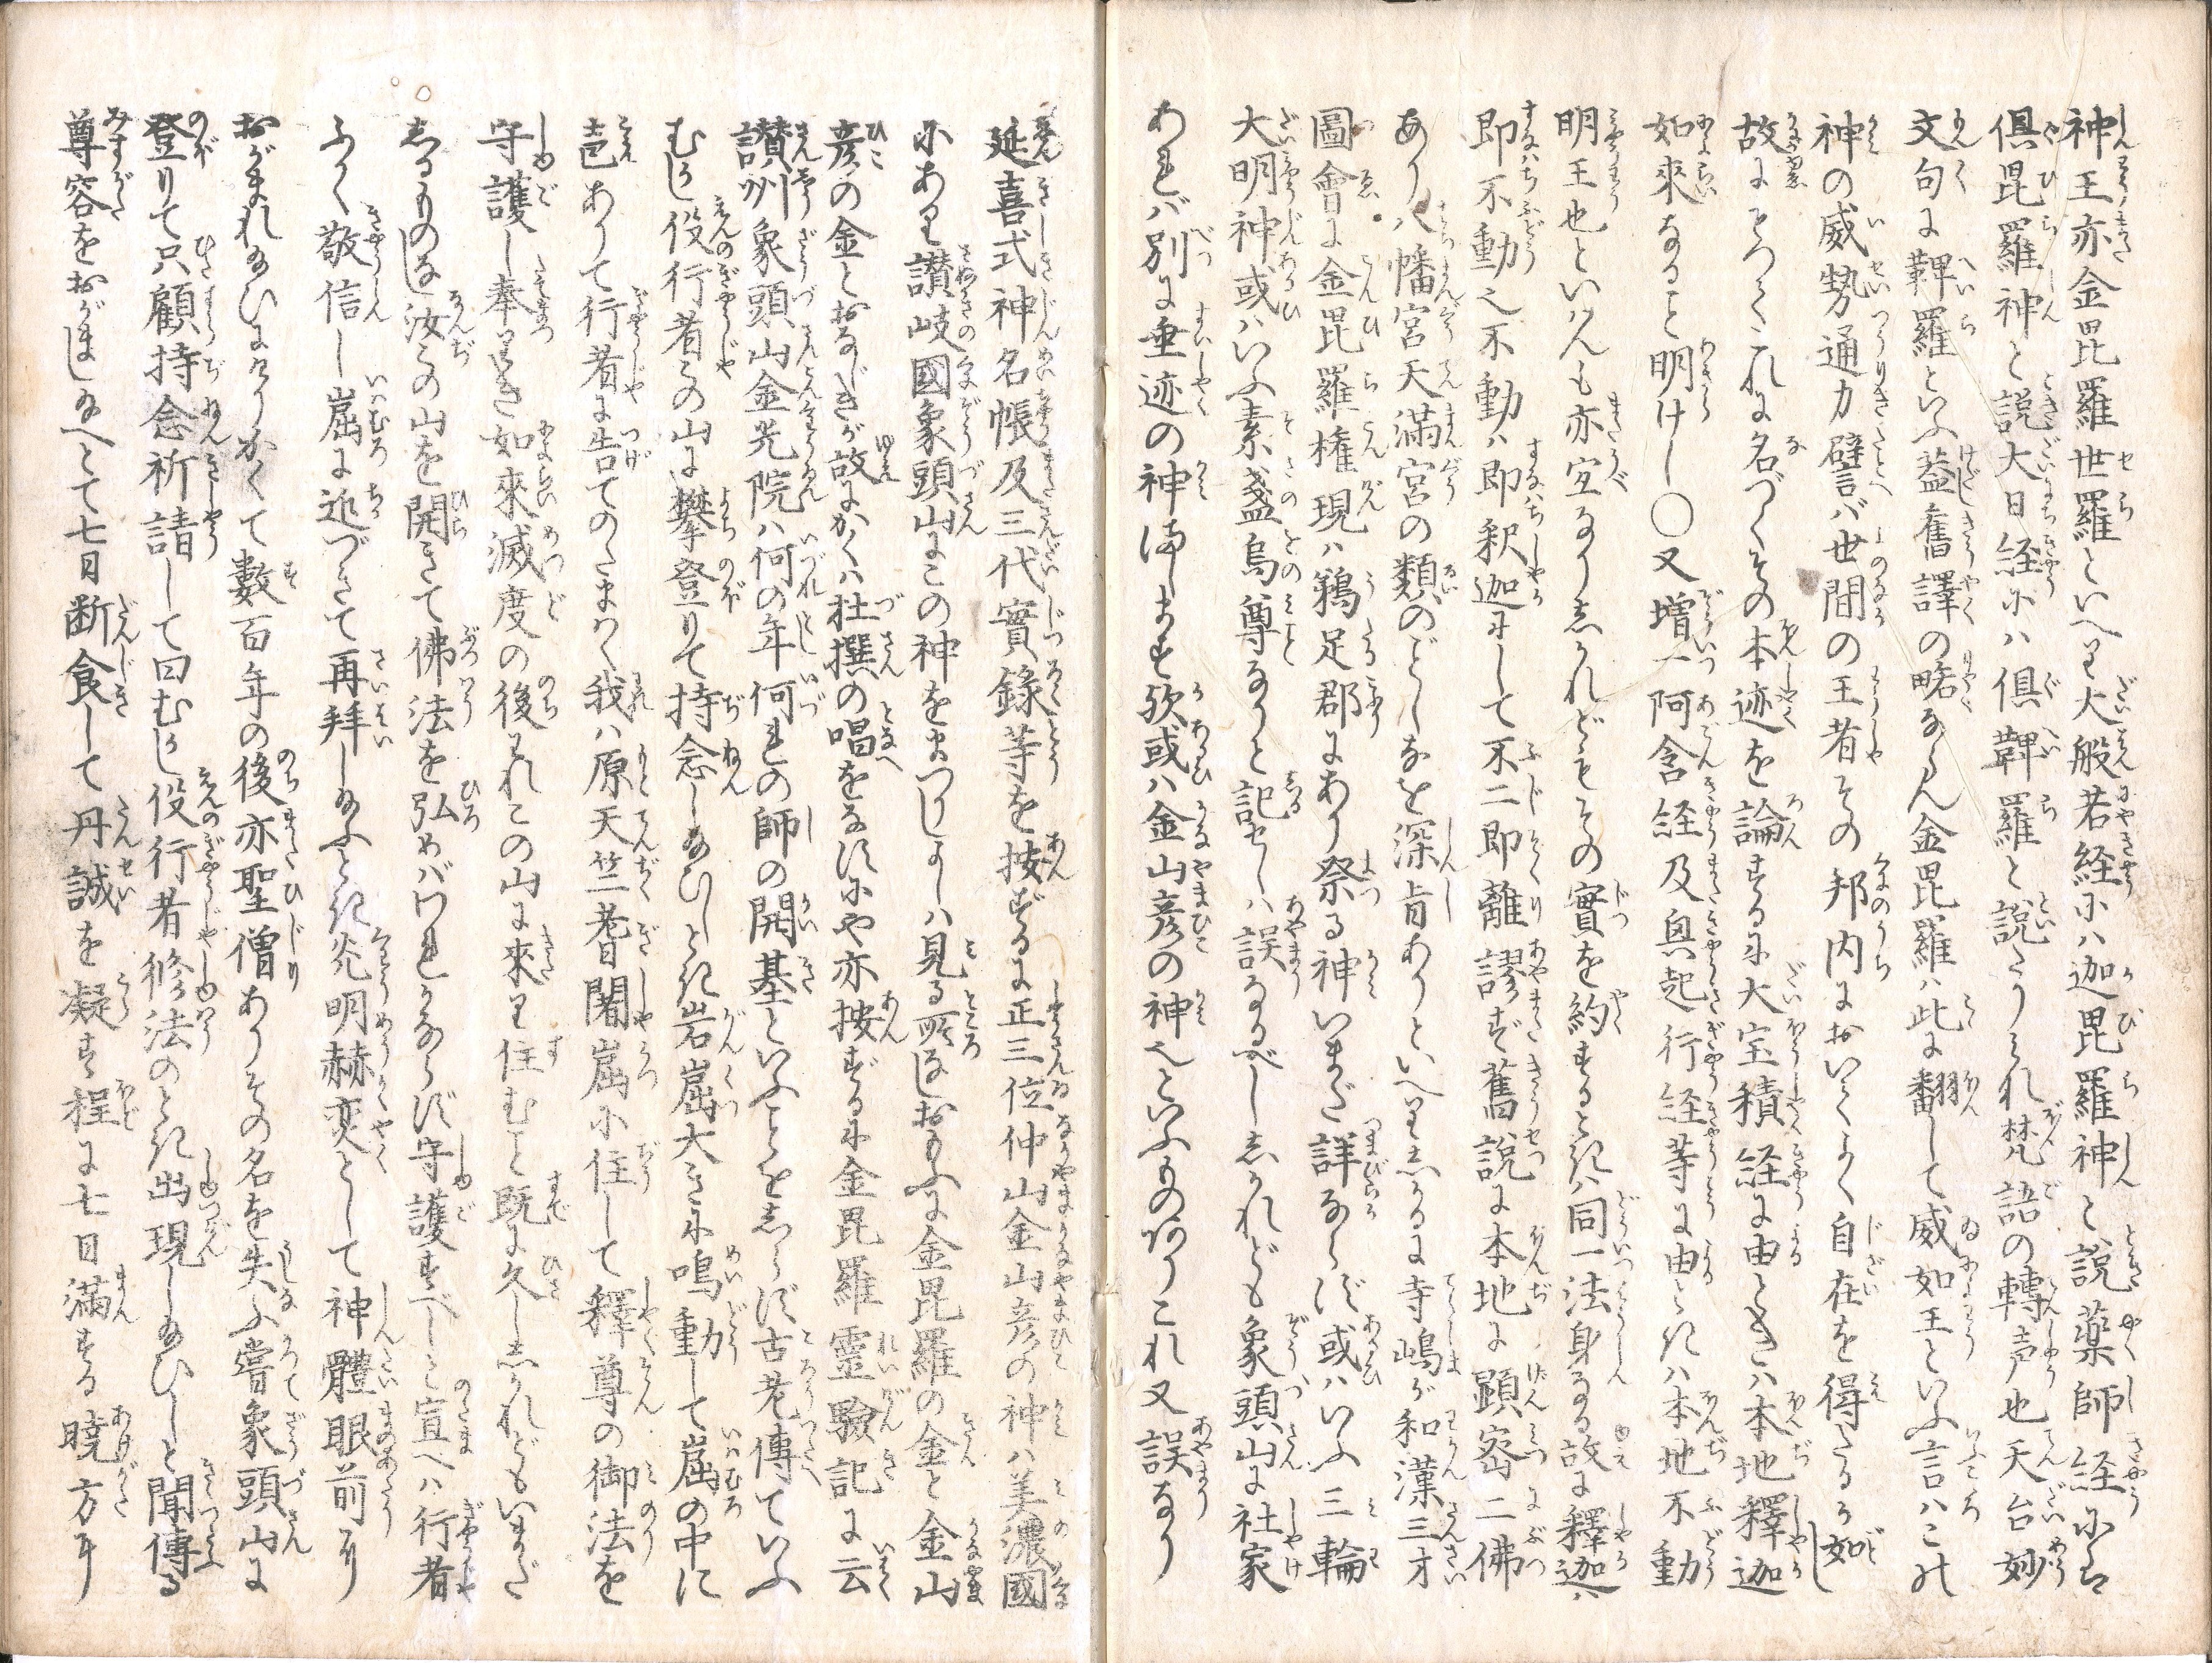 神王亦金毘羅世羅といへり大般若経にハ迦毘羅神と説薬師経にハ
倶毘羅神と説大日経にハ倶鞞羅と説たりこれ梵語の轉声也天台妙
文句に鞞羅といふ蓋舊譯の略ならん金毘羅ハ此に翻して威如王といふ言ハこの
神の威勢通力譬バ世間の王者その邦内においてよく自在を得たるが如し
故によつてこれに名づくその本迹を論ずるに大宝積経に由ときハ本地釋迦
如來なること明けし○又増一阿含経及興起行経等に由ときハ本地不動
明王也といはんも亦宜なりしかれどもその實を約するときハ同一法身なる故に釋迦ハ
即不動也不動ハ即釈迦にして不二即離謬ず舊説に本地に顕密二佛
あり八幡宮天満宮の類のごとしなを深旨ありといへりしかるに寺嶋が和漢三才
圖會に金毘羅権現ハ鵜足郡にあり祭る神いまだ詳ならず或ハいふ三輪
大明神或ハいふ素盞烏尊なりと記せしハ誤なるべししかれども象頭山に社家
あれバ別に垂迹の神ましますか或ハ金山彦の神也といふものありこれ又誤なり
延喜式神名帳及三代實錄等を按ずるに正三位仲山金山彦の神ハ美濃國
にあり讃岐國象頭山にこの神をまつりしよしハ見る所なしおもふに金毘羅の金と金山
彦の金とおなじきが故にかくハ杜撰の唱をなすにや亦按ずるに金毘羅靈驗記に云
讃州象頭山金光院ハ何の年何れの師の開基といふことをしらず古老傳ていふ
むかし役行者この山に攀登りて持念し給ひしとき岩崛大きに鳴動して崛の中に
声ありて行者に告てのたまはく我ハ原天竺耆闍崛に住して釋尊の御法を
守護し奉りき如來滅度の後われこの山に來り住むこと既に久ししかれどもいまだ
しるものなし汝この山を開きて佛法を弘めバわれかならず守護すべしと宣へハ行者
ふかく敬信し崛に近づきて再拝し給ふとき光明赫奕として神體眼前に
おがまれ給ひけりかくて數百年の後亦聖僧ありその名を失ふ嘗象頭山に
登りて只顧持念祈請して曰むかし役行者修法のとき出現し給ひしと聞傳る
尊容をおがましめ給へとて七日断食して丹誠を凝す程に七日満する暁方に